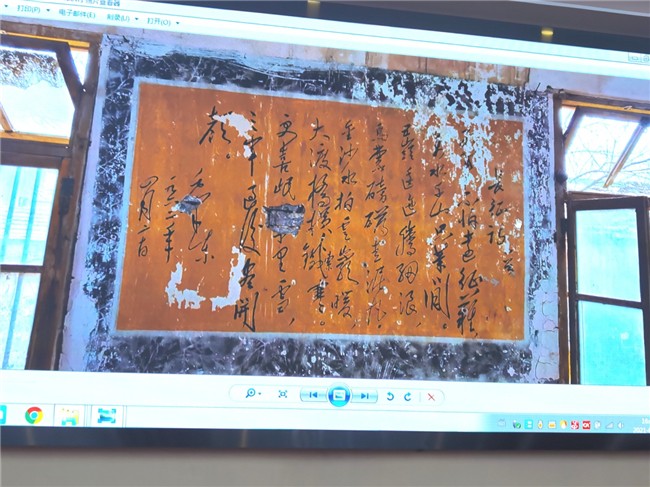 打印(P) 电子邮件(E) 刻录(U) 打开(O)
长征诗
不怕远征难，
水千山只等闲。
五岭逶迤腾细浪，
乌蒙磅礴走泥丸，
金沙水拍云崖暖，
大渡桥横铁索寒。
更喜岷 里雪，
三军过后尽开
颜。
毛泽东